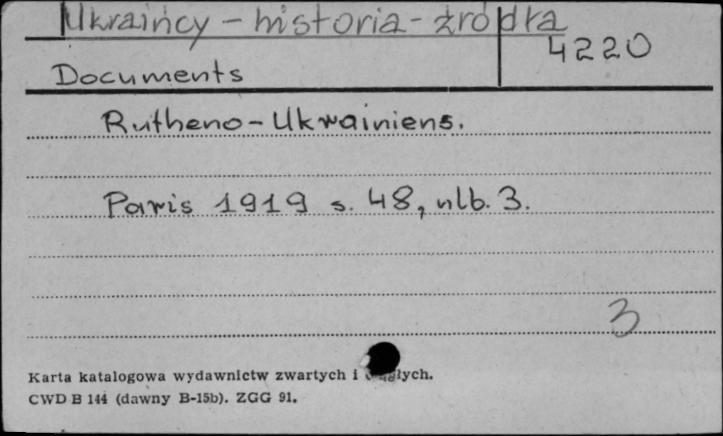 Ukraińcy - historia - źródła
4220
Documents
Rutheno-Ukrainiens.
Paris 1919 s. 48, nlb. 3.
3
Karta katalogowa wydawnictw zwartych i
CWD B 144 (dawny B-15b). ZGG 91.